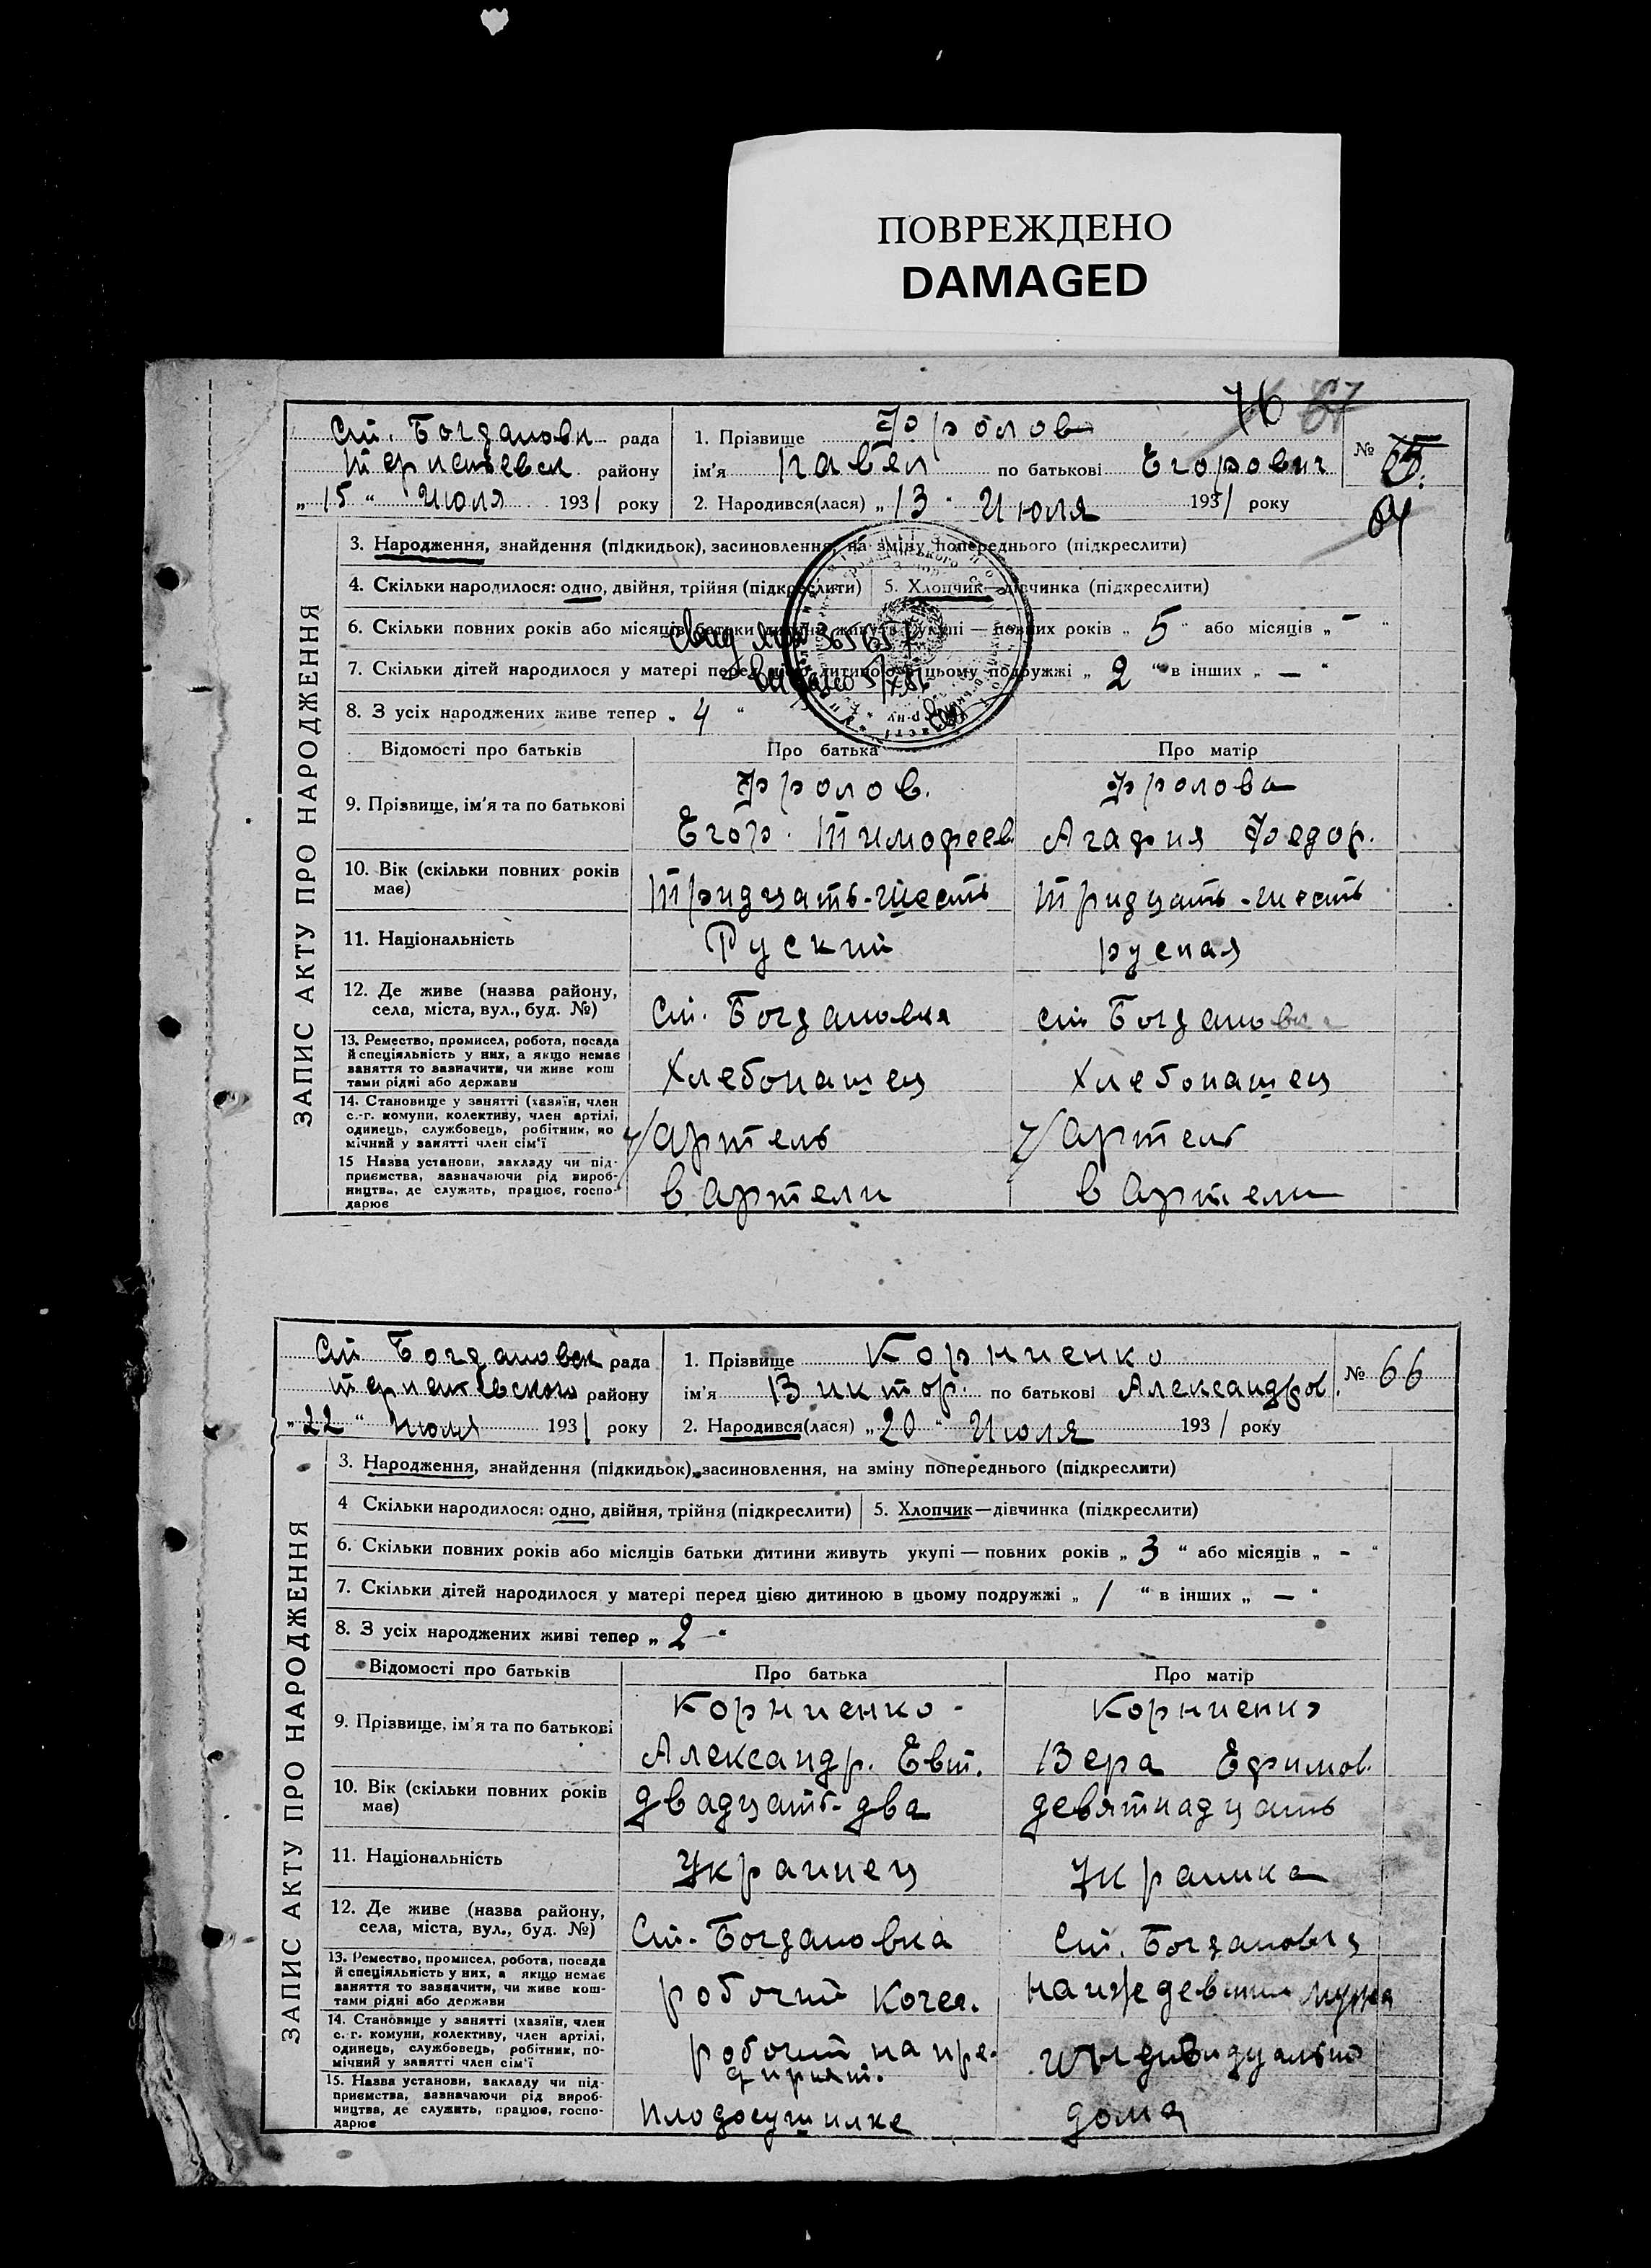 ПОВРЕЖДЕНО
DAMAGED
76 67
Ст. Богдановк рада
Терпеньевск району
„15“ Июля 1931 року
1. Прізвище Фролов
ім'я Павел по батькові Егорович
2. Народився(лася) „13“ Июля 1931 року
№ 65.
ЗАПИС АКТУ ПРО НАРОДЖЕННЯ
3. Народження, знайдення (підкидьок), засиновлення, на зміну попереднього (підкреслити)
4. Скільки народилося: одно, двійня, трійня (підкреслити) 5. Хлопчик—дівчинка (підкреслити)
6. Скільки повних років або місяців батьки дитини живуть укупі — повних років „5“ або місяців „-“
7. Скільки дітей народилося у матері перед цією дитиною в цьому подружжі „2“ в інших „—“
8. З усіх народжених живе тепер „4“
Відомості про батьків Про батька Про матір
9. Прізвище, ім'я та по батькові
Фролов. Фролова
Егор. Тимофеев Агафия Федор.
10. Вік (скільки повних років має)
Тридцать-шесть Тридцать-шесть
11. Національність
Руский руская
12. Де живе (назва району, села, міста, вул., буд. №)
Ст. Богдановка ст. Богдановка
13. Ремество, промисел, робота, посада
й спеціяльність у них, а якщо немає
заняття то зазначити, чи живе кош
тами рідні або держави
Хлебопашец Хлебопашец
14. Становище у занятті (хазяїн, член
с.-г. комуни, колективу, член артілі,
одинець, службовець, робітник, по
мічний у занятті член сім'ї
ч/артель ч/артель
15 Назва установи, закладу чи під-
приємства, зазначаючи рід вироб-
ництва, де служить, працює, госпо-
дарює
в артели в артели
Ст Богдановск рада
терпеньевского району
„22“ Июля 1931 року
1. Прізвище Корниенко
ім'я Виктор. по батькові Александров.
2. Народився(лася) „20“ Июля 1931 року
№ 66
ЗАПИС АКТУ ПРО НАРОДЖЕННЯ
3. Народження, знайдення (підкидьок), засиновлення, на зміну попереднього (підкреслити)
4 Скільки народилося: одно, двійня, трійня (підкреслити) 5. Хлопчик—дівчинка (підкреслити)
6. Скільки повних років або місяців батьки дитини живуть укупі — повних років „3“ або місяців „-“
7. Скільки дітей народилося у матері перед цією дитиною в цьому подружжі „1“ в інших „—“
8. З усіх народжених живі тепер „2“
Відомості про батьків Про батька Про матір
9. Прізвище, ім'я та по батькові
Корниенко - Корниенко
Александр. Евт. Вера Ефимов.
10. Вік (скільки повних років має)
двадцать-два девятнадцать
11. Національність
Украинец Украинка
12. Де живе (назва району, села, міста, вул., буд. №)
Ст. Богдановка Ст. Богдановка
13. Ремество, промисел, робота, посада
й спеціяльність у них, а якщо немає
заняття то зазначити, чи живе кош-
тами рідні або держави
робочий Кочег. на иждевении мужа
14. Становище у занятті (хазяїн, член
с. г. комуни, колективу, член артілі,
одинець, службовець, робітник, по-
мічний у занятті член сім'ї
робочий на пре- индивидуально
15. Назва установи, закладу чи під-
приємства, зазначаючи рід вироб-
ництва, де служить, працює, госпо-
дарює
плодосушилке дома